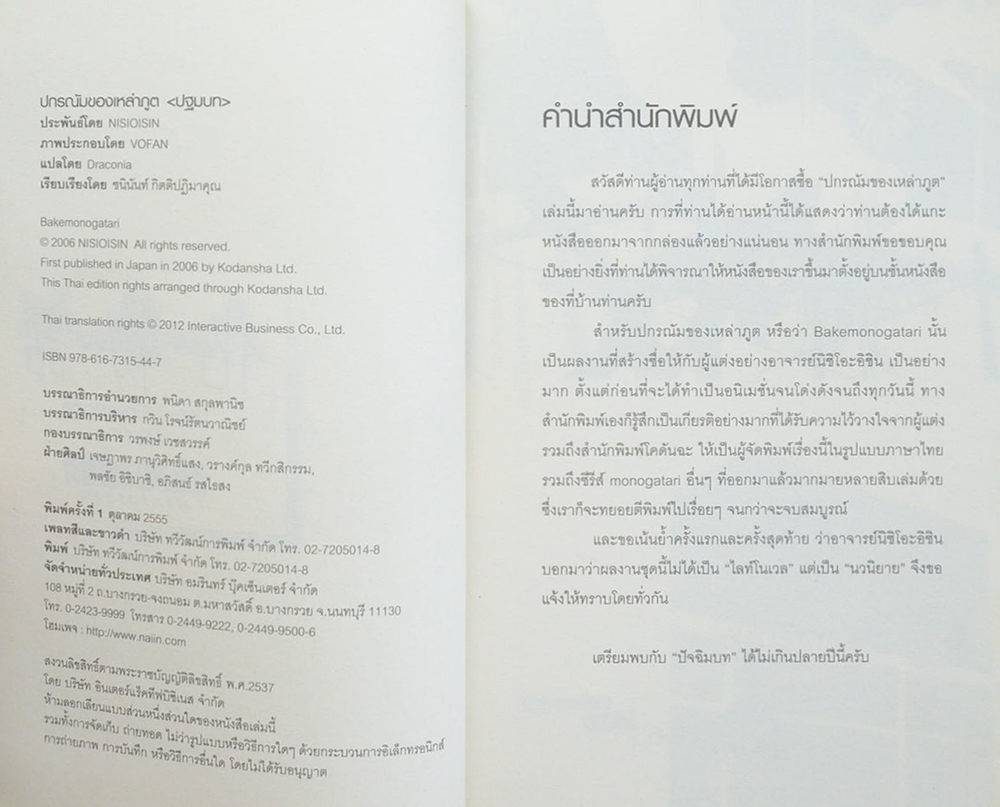 ปกรณัมของเหล่าภูต <ปฐมบท>
ประพันธ์โดย NISIOISIN
ภาพประกอบโดย VOFAN
แปลโดย Draconia
เรียบเรียงโดย ชนินันท์ กิตติปฏิมาคุณ
Bakemonogatari
© 2006 NISIOISIN All rights reserved.
First published in Japan in 2006 by Kodansha Ltd.
This Thai edition rights arranged through Kodansha Ltd.
Thai translation rights © 2012 Interactive Business Co., Ltd.
ISBN 978-616-7315-44-7
บรรณาธิการอำนวยการ พนิดา สกุลพานิช
บรรณาธิการบริหาร กวิน โรจน์รัตนวาณิชย์
กองบรรณาธิการ วรพงษ์ เวชสวรรค์
ฝ่ายศิลป์ เจษฎาพร ภานุวิศิทธิ์แสง, วรางค์กุล ทวีกสิกรรม,
พลชัย อิชิบาชิ, อภิสนธ์ รสไธสง
พิมพ์ครั้งที่ 1 ตุลาคม 2555
เพลทสีและขาวดำ บริษัท ทวีวัฒน์การพิมพ์ จำกัด โทร. 02-7205014-8
พิมพ์ บริษัท ทวีวัฒน์การพิมพ์ จำกัด โทร. 02-7205014-8
จัดจำหน่ายทั่วประเทศ บริษัท อมรินทร์ บุ๊คเซ็นเตอร์ จำกัด
108 หมู่ที่ 2 ถ.บางกรวย-จงถนอม ต.มหาสวัสดิ์ อ.บางกรวย จ.นนทบุรี 11130
โทร. 0-2423-9999 โทรสาร 0-2449-9222, 0-2449-9500-6
โฮมเพจ : http://www.naiin.com
สงวนลิขสิทธิ์ตามพระราชบัญญัติลิขสิทธิ์ พ.ศ.2537
โดย บริษัท อินเตอร์แร็คทีฟบิซิเนส จำกัด
ห้ามลอกเลียนแบบส่วนหนึ่งส่วนใดของหนังสือเล่มนี้
รวมทั้งการจัดเก็บ ถ่ายทอด ไม่ว่ารูปแบบหรือวิธีการใดๆ ด้วยกระบวนการอิเล็กทรอนิกส์
การถ่ายภาพ การบันทึก หรือวิธีการอื่นใด โดยไม่ได้รับอนุญาต
คำนำสำนักพิมพ์
สวัสดีท่านผู้อ่านทุกท่านที่ได้มีโอกาสซื้อ "ปกรณัมของเหล่าภูต"
เล่มนี้มาอ่านครับ การที่ท่านได้อ่านหน้านี้ได้แสดงว่าท่านต้องได้แกะ
หนังสือออกมาจากกล่องแล้วอย่างแน่นอน ทางสำนักพิมพ์ขอขอบคุณ
เป็นอย่างยิ่งที่ท่านได้พิจารณาให้หนังสือของเราขึ้นมาตั้งอยู่บนชั้นหนังสือ
ของที่บ้านท่านครับ
สำหรับปกรณัมของเหล่าภูต หรือว่า Bakemonogatari นั้น
เป็นผลงานที่สร้างชื่อให้กับผู้แต่งอย่างอาจารย์นิชิโอะอิชิน เป็นอย่าง
มาก ตั้งแต่ก่อนที่จะได้ทำเป็นอนิเมชั่นจนโด่งดังจนถึงทุกวันนี้ ทาง
สำนักพิมพ์เองก็รู้สึกเป็นเกียรติอย่างมากที่ได้รับความไว้วางใจจากผู้แต่ง
รวมถึงสำนักพิมพ์โคดันฉะ ให้เป็นผู้จัดพิมพ์เรื่องนี้ในรูปแบบภาษาไทย
รวมถึงซีรีส์ monogatari อื่นๆ ที่ออกมาแล้วมากมายหลายสิบเล่มด้วย
ซึ่งเราก็จะทยอยตีพิมพ์ไปเรื่อยๆ จนกว่าจะจบสมบูรณ์
และขอเน้นย้ำครั้งแรกและครั้งสุดท้าย ว่าอาจารย์นิชิโอะอิชิน
บอกมาว่าผลงานชุดนี้ไม่ได้เป็น "ไลท์โนเวล" แต่เป็น "นวนิยาย" จึงขอ
แจ้งให้ทราบโดยทั่วกัน
เตรียมพบกับ "ปัจฉิมบท" ได้ไม่เกินปลายปีนี้ครับ